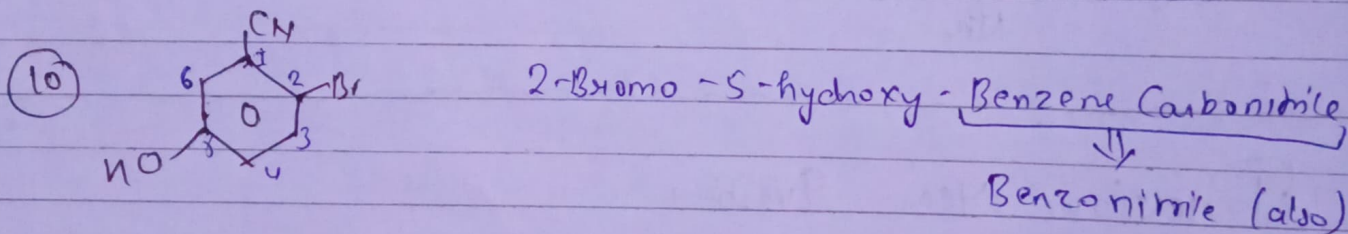 10
CN
1
6
2
Br
O
3
HO
5
4
2-Bromo-5-hydroxy-Benzene Carbonitrile
⇓
Benzonitrile (also)